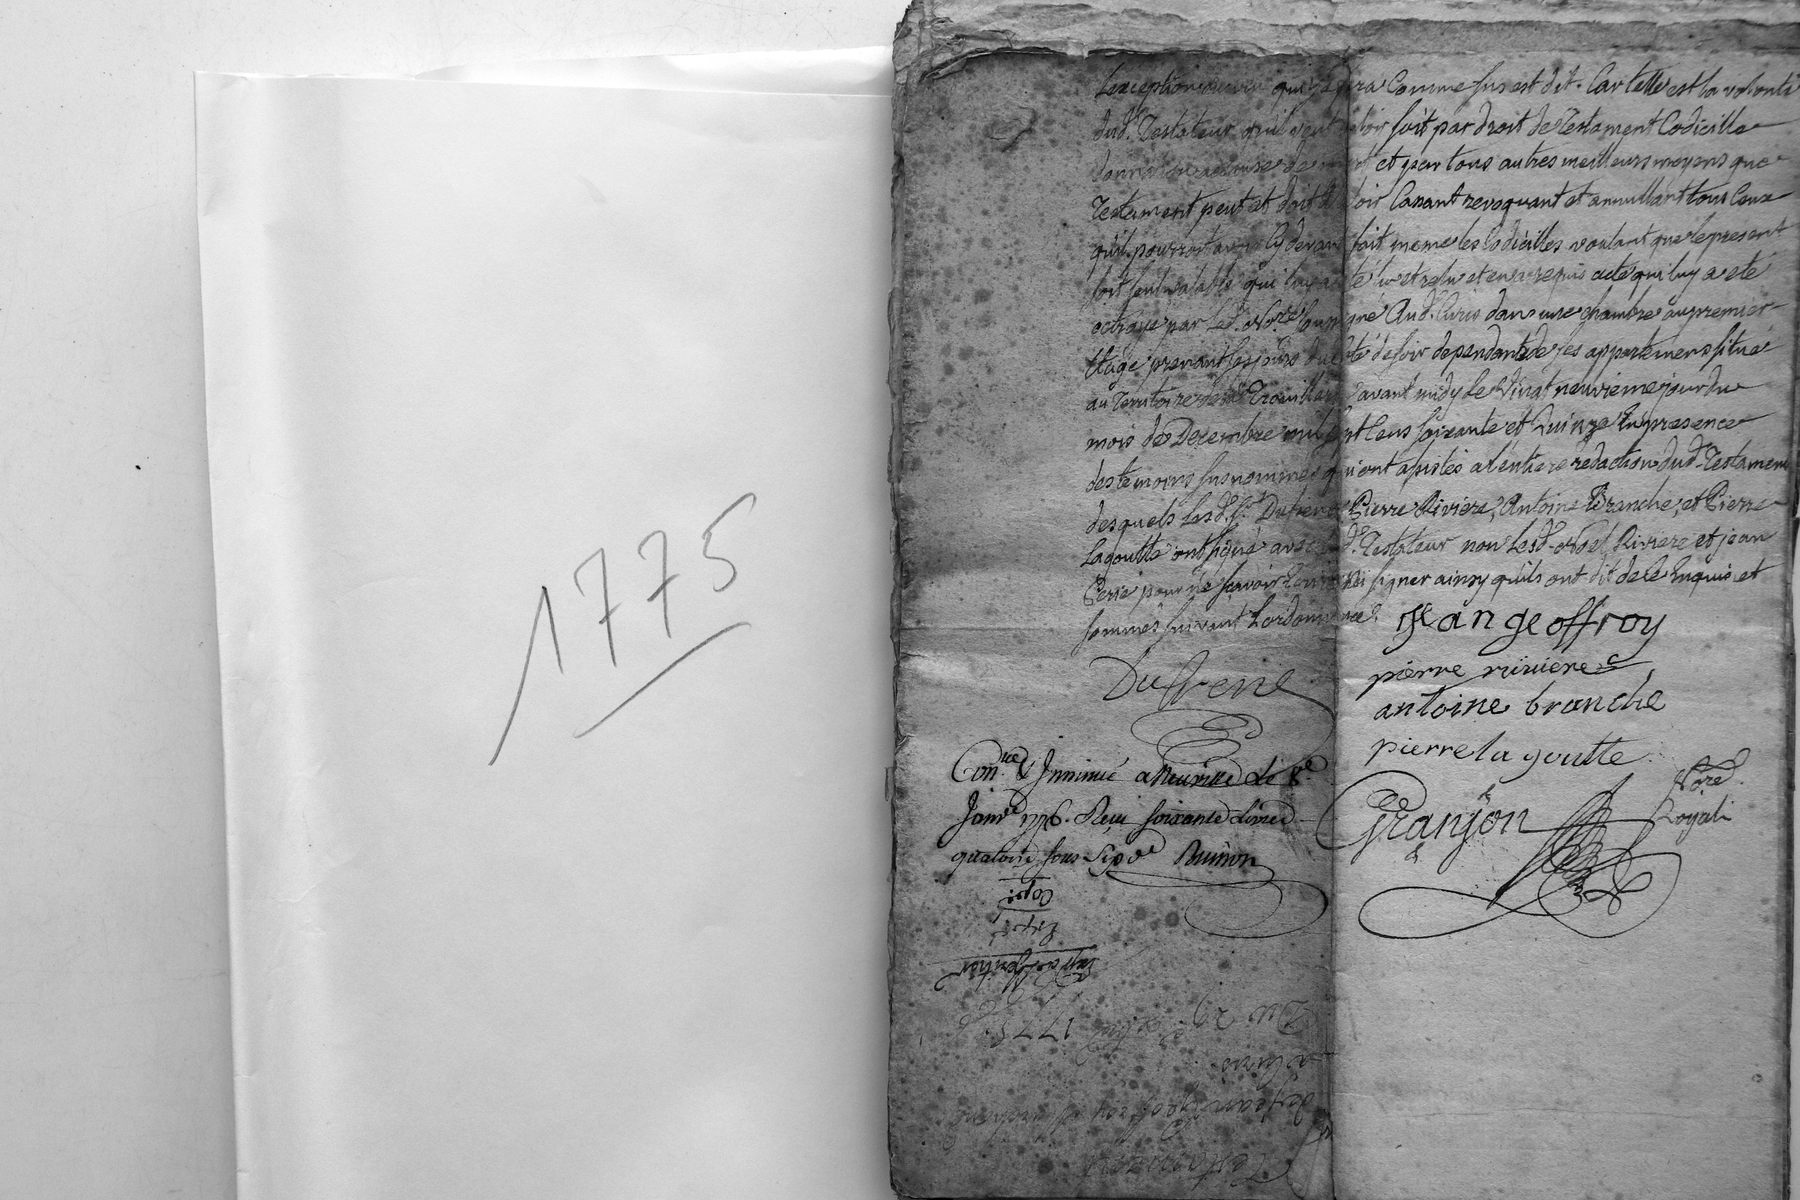 1775
Lexception qui sera Comme sus est dit. Car telle est la volonté
dud. Testateur qu'il veut valoir soit par droit de Testament Codicille
donnation a cause de mort et par tous autres meilleurs moyens que
Testament peut et doit valoir Cassant revoquant et annullant tous Ceux
qu'il pourroit avoir Cy devant fait meme les Codicilles voulant que le present
soit seul valable qui luy a été lu et relu et en a requis acte qui luy a eté
octroyé par led. No.re soussigné Aud. Curis dans une chambre au premier
Etage prenant ses jours du coté de soir dependante de ses appartemens situé
au Territoire de la Trouillere avant midy le Vingt neuvieme jour du
mois de Decembre mil sept Cens soixante et Quinze En presence
des temoins susnommés qui ont assistés a l'entiere redaction dud. Testament
desquels lesd. Sr. Dufrene Pierre Riviere, Antoine Branche, et Pierre
Lagoutte ont signé avec led. Testateur non lesd. Noel Riviere et jean
pour ne savoir Ecrire ni signer ainsy qu'ils ont dit de ce Enquis et
sommés suivant Lordonnance.
jean geoffroy
Dufrene
pierre riviere
antoine branche
pierre la goutte
Granjon No.re Royal
Con.lé & Insinué a Neuville Le 8.e
Janv.r 1776. Reçu soixante Livres
quatorze sous Six d.
Copié
Du 29 Xbre 1775
a Curis
Testament
de jean Geoffroy